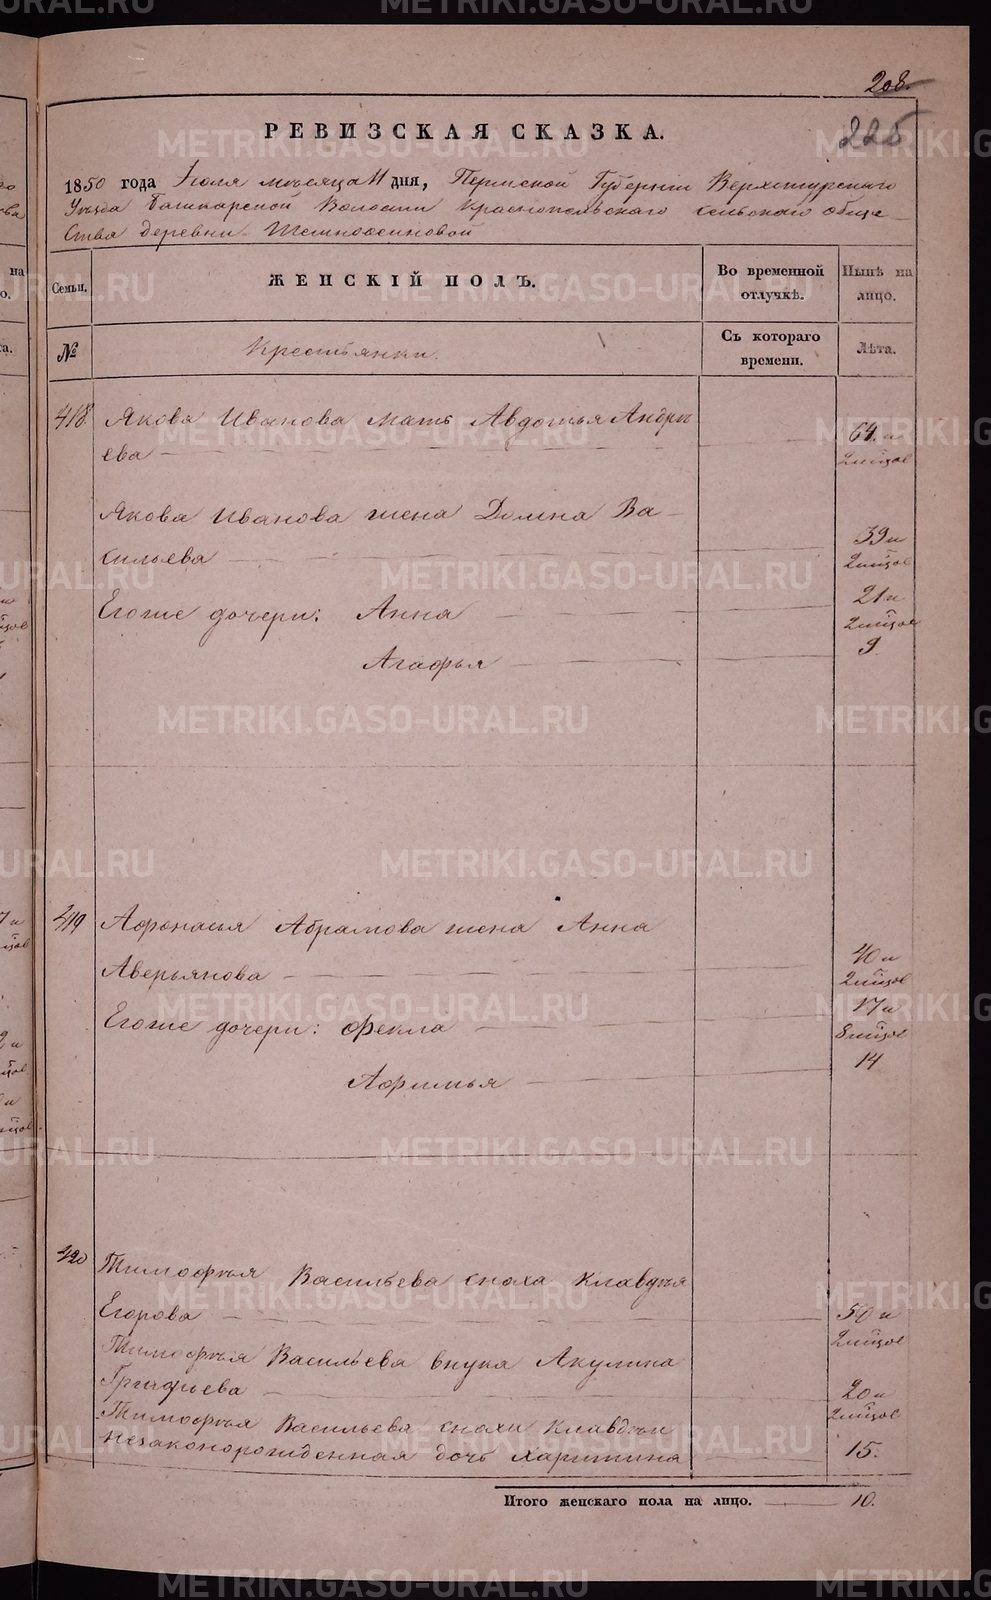 208.
225
РЕВИЗСКАЯ СКАЗКА.
1850 года Июля месяца 11 дня, Пермской Губернии Верхотурскаго
Уезда Башкарской Волости Краснопольскаго сельскаго обще
ства деревни
Семьи.
ЖЕНСКІЙ ПОЛЪ.
Во временной отлучкѣ.
Нынѣ на лицо.
№
Крестьянки.
Съ котораго времени.
Лѣта.
418. Якова Иванова мать Авдотья Андрѣ
ева 64. и 2 мѣсяцов
Якова Иванова жена Домна Ва-
сильева 39 и 2 мѣсяцов
Егоже дочери: Анна 21 и 2 мѣсяцов
Агафья 9
419 Афонасья Абрамова жена Анна
Аверьянова 40 и 2 мѣсяцов
Егоже дочери: Фекла 17 и 8 мѣсяцов
Афимья 14
420 Тимофѣя Васильева сноха Клавдѣя
Егорова 50 и 2 мѣсяцов
Тимофѣя Васильева внука Акулина
20 и 2 мѣсяцов
Тимофѣя Васильева снохи Клавдѣи
незаконорожденная дочь Харитина 15.
Итого женскаго пола на лицо. 10.
METRIKI.GASO-URAL.RU